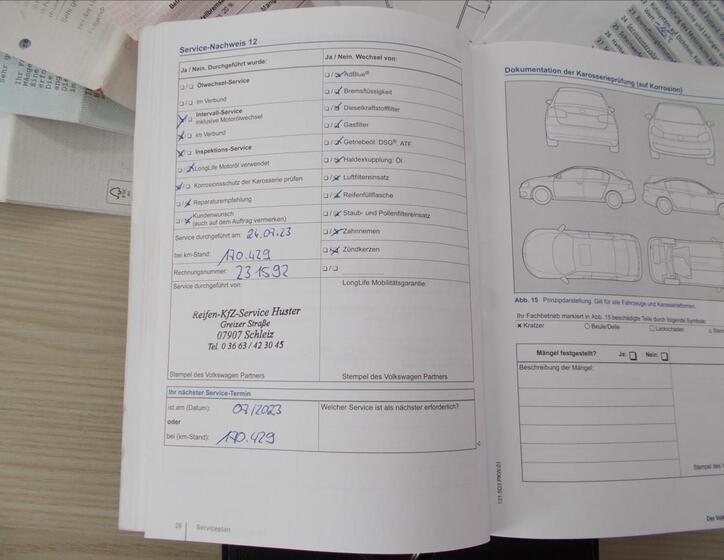 Service-Nachweis 12
Ja / Nein. Durchgeführt wurde:
Ölwechsel-Service
im Verbund
Intervall-Service
inklusive Motorölwechsel
im Verbund
Inspektions-Service
LongLife Motoröl verwendet
Korrosionsschutz der Karosserie prüfen
Reparaturempfehlung
Kundenwunsch
(auch auf dem Auftrag vermerken)
Service durchgeführt am: 24.07.23
bei km-Stand: 170.429
Rechnungsnummer: 231592
Service durchgeführt von:
Reifen-KfZ-Service Huster
Greizer Straße
07907 Schleiz
Tel. 0 36 63 / 42 30 45
Stempel des Volkswagen Partners
Ja / Nein. Wechsel von:
AdBlue®
Bremsflüssigkeit
Dieselkraftstofffilter
Gasfilter
Getriebeöl: DSG®, ATF
Haldexkupplung: Öl
Luftfiltereinsatz
Reifenfüllflasche
Staub- und Pollenfiltereinsatz
Zahnriemen
Zündkerzen
LongLife Mobilitätsgarantie:
Stempel des Volkswagen Partners
Ihr nächster Service-Termin
ist am (Datum): 07/2023
oder
bei (km-Stand): 170.429
Welcher Service ist als nächster erforderlich?
Serviceplan
Dokumentation der Karosserieprüfung (auf Korrosion)
Abb. 15 Prinzipdarstellung. Gilt für alle Fahrzeuge und Karosserieformen.
Ihr Fachbetrieb markiert in Abb. 15 beschädigte Teile durch folgende Symbole:
Kratzer
Beule/Delle
Lackschaden
Mängel festgestellt? Ja: Nein:
Beschreibung der Mängel:
Stempel des